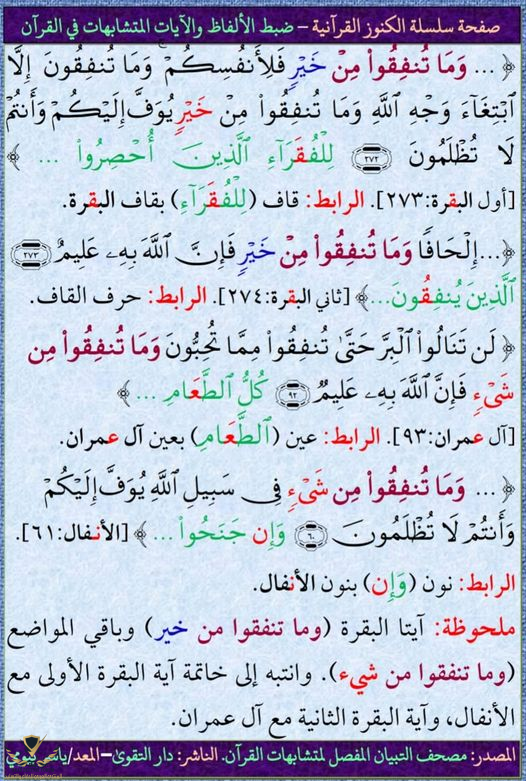 صفحة سلسلة الكنوز القرآنية – ضبط الألفاظ والآيات المتشابهات في القرآن
﴿ ... وَمَا تُنفِقُواْ مِنْ خَيْرٍ فَلِأَنفُسِكُمْ ۚ وَمَا تُنفِقُونَ إِلَّا
ٱبْتِغَآءَ وَجْهِ ٱللَّهِ وَمَا تُنفِقُواْ مِنْ خَيْرٍ يُوَفَّ إِلَيْكُمْ وَأَنتُمْ
لَا تُظْلَمُونَ ٢٧٢ لِلْفُقَرَآءِ ٱلَّذِينَ أُحْصِرُواْ ... ﴾
[أول البقرة:٢٧٣]. الرابط: قاف (لِلْفُقَرَآءِ) بقاف البقرة.
﴿...إِلْحَافًا وَمَا تُنفِقُواْ مِنْ خَيْرٍ فَإِنَّ ٱللَّهَ بِهِۦ عَلِيمٌ ٢٧٣
ٱلَّذِينَ يُنفِقُونَ...﴾ [ثاني البقرة:٢٧٤]. الرابط: حرف القاف.
﴿ لَن تَنَالُواْ ٱلْبِرَّ حَتَّىٰ تُنفِقُواْ مِمَّا تُحِبُّونَ وَمَا تُنفِقُواْ مِن
شَىْءٍ فَإِنَّ ٱللَّهَ بِهِۦ عَلِيمٌ ٩٢ كُلُّ ٱلطَّعَامِ ... ﴾
[آل عمران:٩٣]. الرابط: عين (ٱلطَّعَامِ) بعين آل عمران.
﴿ ... وَمَا تُنفِقُواْ مِن شَىْءٍ فِى سَبِيلِ ٱللَّهِ يُوَفَّ إِلَيْكُمْ
وَأَنتُمْ لَا تُظْلَمُونَ ٦٠ وَإِن جَنَحُواْ ... ﴾ [الأنفال:٦١].
الرابط: نون (وَإِن) بنون الأنفال.
ملحوظة: آيتا البقرة (وما تنفقوا من خير) وباقي المواضع
(وما تنفقوا من شيء). وانتبه إلى خاتمة آية البقرة الأولى مع
الأنفال، وآية البقرة الثانية مع آل عمران.
المصدر: مصحف التبيان المفصل لمتشابهات القرآن. الناشر: دار التقوىٰ–المعد/ياسر بيومي